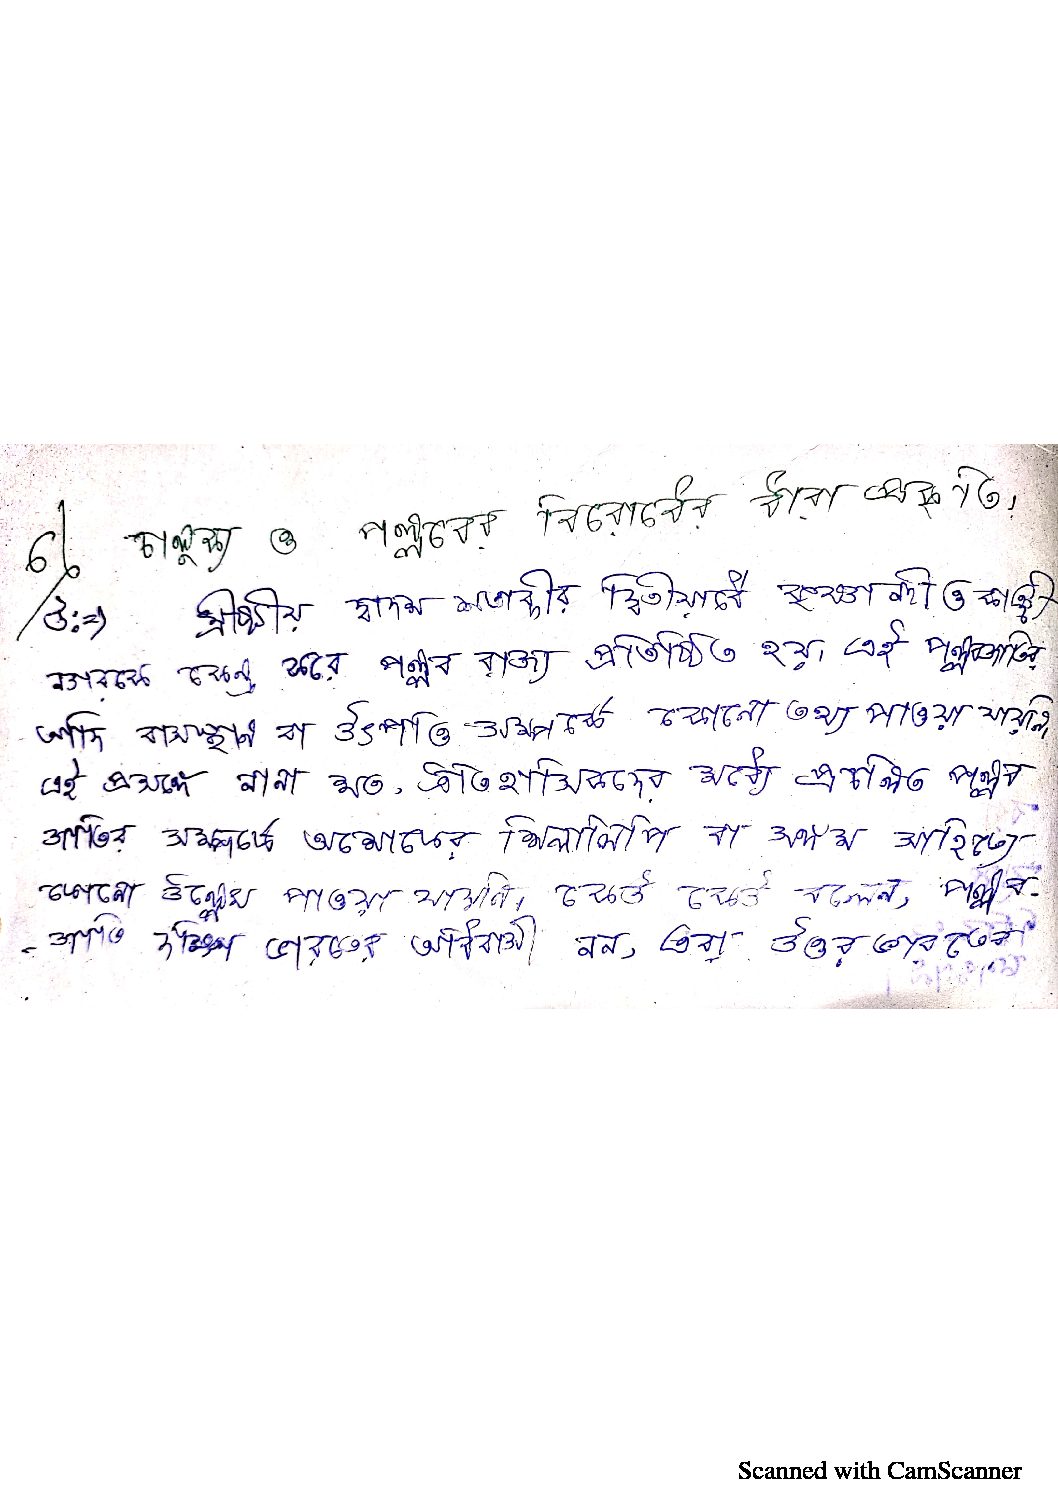 ৫। চালুক্য ও পল্লবের বিরোধের ধারা প্রকৃতি।
উঃ⇒ খ্রীষ্টীয় দ্বাদশ শতাব্দীর দ্বিতীয়ার্ধে কৃষ্ণা নদী ও কাঞ্চী
নগরকে কেন্দ্র করে পল্লব রাজ্য প্রতিষ্ঠিত হয়। এই পল্লবজাতির
আদি বাসস্থান বা উৎপত্তি সম্পর্কে কোনো তথ্য পাওয়া যায়নি,
এই প্রসঙ্গে নানা মত, ঐতিহাসিকদের মধ্যে প্রচলিত পল্লব
জাতির সম্পর্কে অশোকের শিলালিপি বা সঙ্গম সাহিত্যে
কোনো উল্লেখ পাওয়া যায়নি, কেউ কেউ বলেন, পল্লব-
জাতি দক্ষিণ ভারতের অধিবাসী নন, এরা উত্তর ভারতের
Scanned with CamScanner